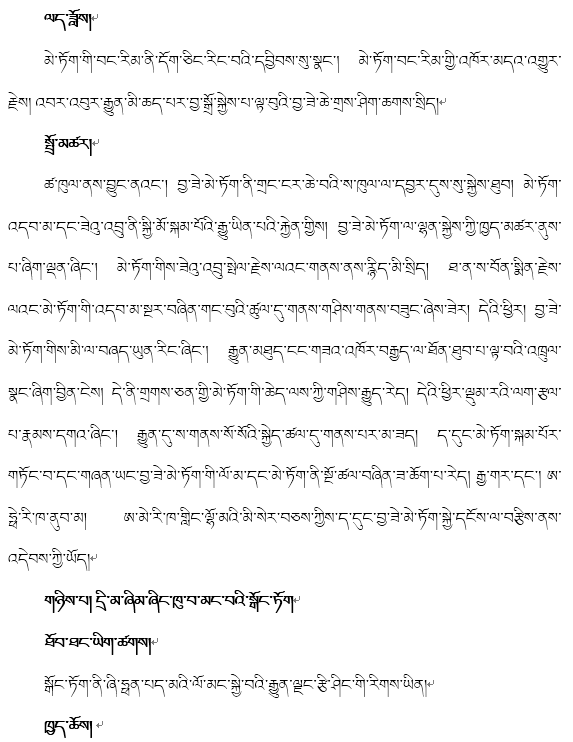 ལད་ཟློས།
མེ་ཏོག་གི་བང་རིམ་ནི་དོག་ཅིང་རིང་བའི་དབྱིབས་སུ་སྣང་། མེ་ཏོག་བང་རིམ་གྱི་འཁོར་མདའ་འགྱུར་
རྗེས། འབར་འབུར་རྒྱུན་མི་ཆད་པར་བྱ་སྒྲོ་སྐྱེས་པ་ལྟ་བུའི་བྱ་ཟེ་ཆེ་གྲས་ཤིག་ཆགས་སྲིད།
སྤྲོ་མཚར།
ཚ་ཁུལ་ནས་བྱུང་ནའང་། བྱ་ཟེ་མེ་ཏོག་ནི་གྲང་ངར་ཆེ་བའི་ས་ཁུལ་ལ་དབྱར་དུས་སུ་སྐྱེས་ཐུབ། མེ་ཏོག་
འདབ་མ་དང་ཟེའུ་འབྲུ་ནི་སྐྱི་མོ་སྐམ་པོའི་རྒྱུ་ཡིན་པའི་རྐྱེན་གྱིས། བྱ་ཟེ་མེ་ཏོག་ལ་ལྷན་སྐྱེས་ཀྱི་ཁྱད་མཚར་ནུས་
པ་ཞིག་ལྡན་ཞིང་། མེ་ཏོག་གིས་ཟེའུ་འབྲུ་སྤེལ་རྗེས་ལའང་གནས་ནས་རྙིད་མི་སྲིད། ཐ་ན་ས་བོན་སྨིན་རྗེས་
ལའང་མེ་ཏོག་གི་འདབ་མ་སྔར་བཞིན་གང་བུའི་ཚུལ་དུ་གནས་གཤིས་གནས་བཟུང་ཞེས་ཟེར། དེའི་ཕྱིར། བྱ་ཟེ་
མེ་ཏོག་གིས་མི་ལ་བཞད་ཡུན་རིང་ཞིང་། རྒྱུན་མཐུད་ངང་གཟའ་འཁོར་བརྒྱད་ལ་ཐོན་ཐུབ་པ་ལྟ་བའི་འཁྲུལ་
སྣང་ཞིག་བྱིན་ངེས། དེ་ནི་གྲགས་ཅན་གྱི་མེ་ཏོག་གི་ཆེད་ལས་ཀྱི་གཤིས་རྒྱུད་རེད། དེའི་ཕྱིར་ལྡུམ་རའི་ལག་རྩལ་
པ་རྣམས་དགའ་ཞིང་། རྒྱུན་དུ་ས་གནས་སོ་སོའི་སྐྱེད་ཚལ་དུ་གནས་པར་མ་ཟད། ད་དུང་མེ་ཏོག་སྐམ་པོར་
གཏོང་བ་དང་གཞན་ཡང་བྱ་ཟེ་མེ་ཏོག་གི་ལོ་མ་དང་མེ་ཏོག་ནི་སྔོ་ཚལ་བཞིན་ཟ་ཆོག་པ་རེད། རྒྱ་གར་དང་། ཨ་
ཧྥེ་རི་ཁ་ནུབ་མ། ཨ་མེ་རི་ཁ་གླིང་ལྷོ་མའི་མི་སེར་བཅས་ཀྱིས་ད་དུང་བྱ་ཟེ་མེ་ཏོག་སྐྱེ་དངོས་ལ་བརྩིས་ནས་
འདེབས་ཀྱི་ཡོད།
གཉིས་པ། དྲི་མ་ཞིམ་ཞིང་ཁུ་བ་མང་བའི་སྒོང་ཏོག
ཐོབ་ཐང་ཡིག་ཚགས།
སྒོང་ཏོག་ནི་ཞི་ཧྥན་པད་མའི་ལོ་མང་སྐྱེ་བའི་རྒྱུན་ལྗང་རྩི་ཤིང་གི་རིགས་ཡིན།
ཁྱད་ཆོས།